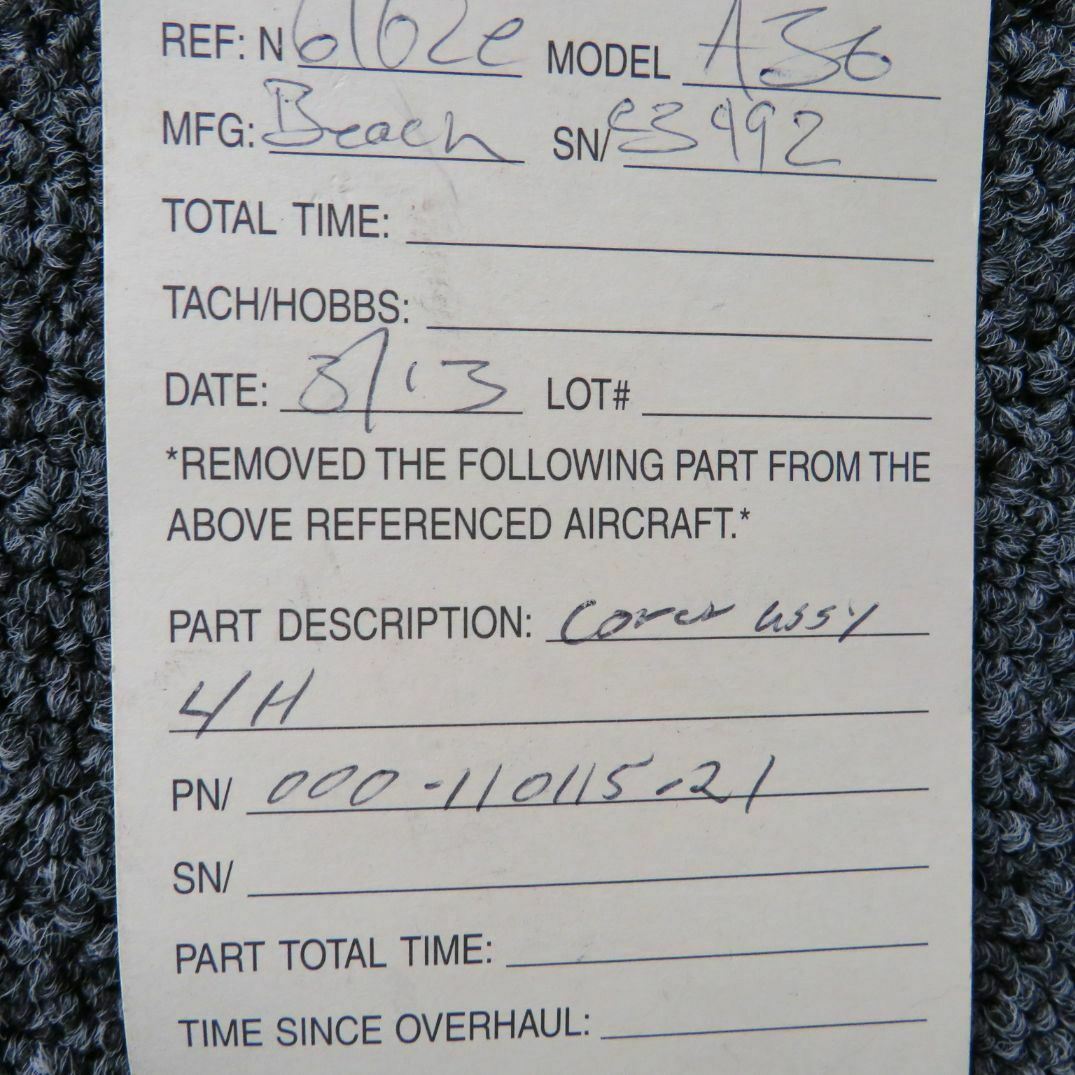 REF: N 6162e MODEL A36
MFG: Beech SN/ E3992
TOTAL TIME:
TACH/HOBBS:
DATE: 3/13 LOT#
*REMOVED THE FOLLOWING PART FROM THE
ABOVE REFERENCED AIRCRAFT.*
PART DESCRIPTION: Cover assy
4H
PN/ 000-110115-21
SN/
PART TOTAL TIME:
TIME SINCE OVERHAUL: